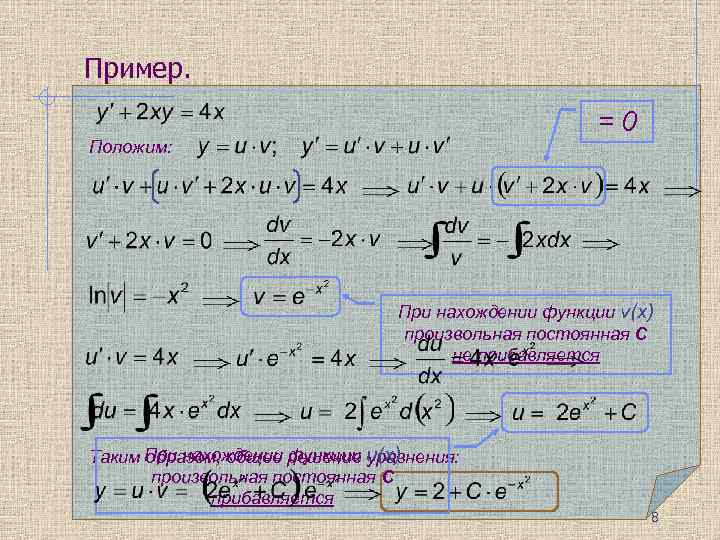 Пример.
y′ + 2xy = 4x
= 0
Положим: y = u·v; y′ = u′·v + u·v′
u′·v + u·v′ + 2x·u·v = 4x ⟹ u′·v + u·(v′ + 2x·v) = 4x ⟹
v′ + 2x·v = 0 ⟹ dv/dx = −2x·v ⟹ ∫dv/v = −∫2xdx ⟹
ln|v| = −x² ⟹ v = e^(−x²)
При нахождении функции v(x)
произвольная постоянная С
не прибавляется
u′·v = 4x ⟹ u′·e^(−x²) = 4x ⟹ du/dx = 4x·e^(x²) ⟹
∫du = ∫4x·e^(x²)dx ⟹ u = 2∫e^(x²)d(x²) ⟹ u = 2e^(x²) + C
Таким образом, общее решение уравнения:
При нахождении функции u(x)
произвольная постоянная С
прибавляется
y = u·v = (2e^(x²) + C)e^(−x²) y = 2 + C·e^(−x²)
8